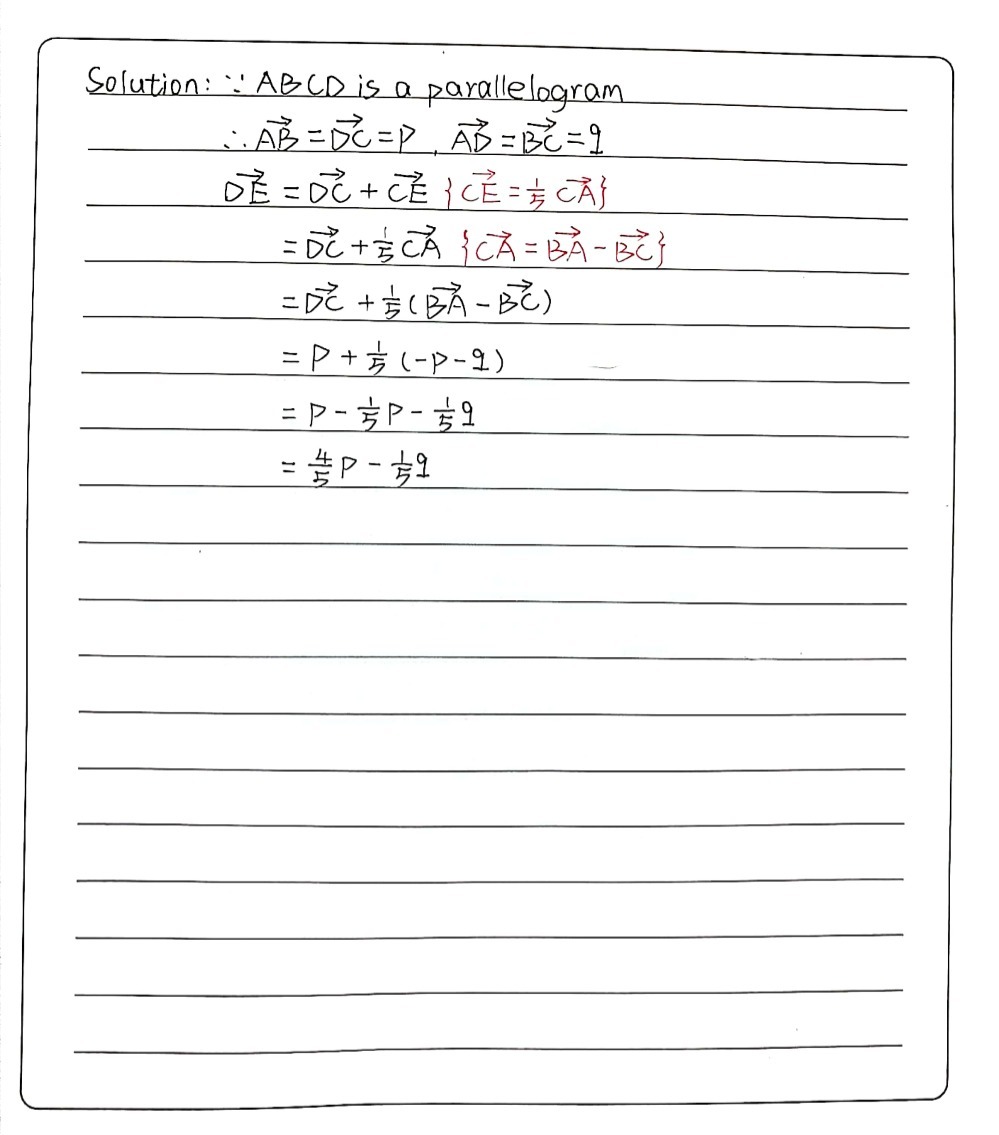 Solution: ∵ ABCD is a parallelogram
∴ $\overrightarrow{AB} = \overrightarrow{DC} = p, \overrightarrow{AD} = \overrightarrow{BC} = q$
$\overrightarrow{DE} = \overrightarrow{DC} + \overrightarrow{CE}$ {$\overrightarrow{CE} = \frac{1}{5} \overrightarrow{CA}$}
$= \overrightarrow{DC} + \frac{1}{5} \overrightarrow{CA}$ {$\overrightarrow{CA} = \overrightarrow{BA} - \overrightarrow{BC}$}
$= \overrightarrow{DC} + \frac{1}{5} (\overrightarrow{BA} - \overrightarrow{BC})$
$= p + \frac{1}{5} (-p - q)$
$= p - \frac{1}{5} p - \frac{1}{5} q$
$= \frac{4}{5} p - \frac{1}{5} q$